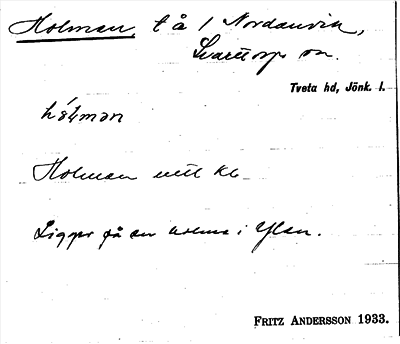 Holman, t å 1 Nordanvik,
Svarttorps sn.
Tveta hd, Jönk. l.
Holman utt Kb
Ligger på en holme i Ylen.
FRITZ ANDERSSON 1933.